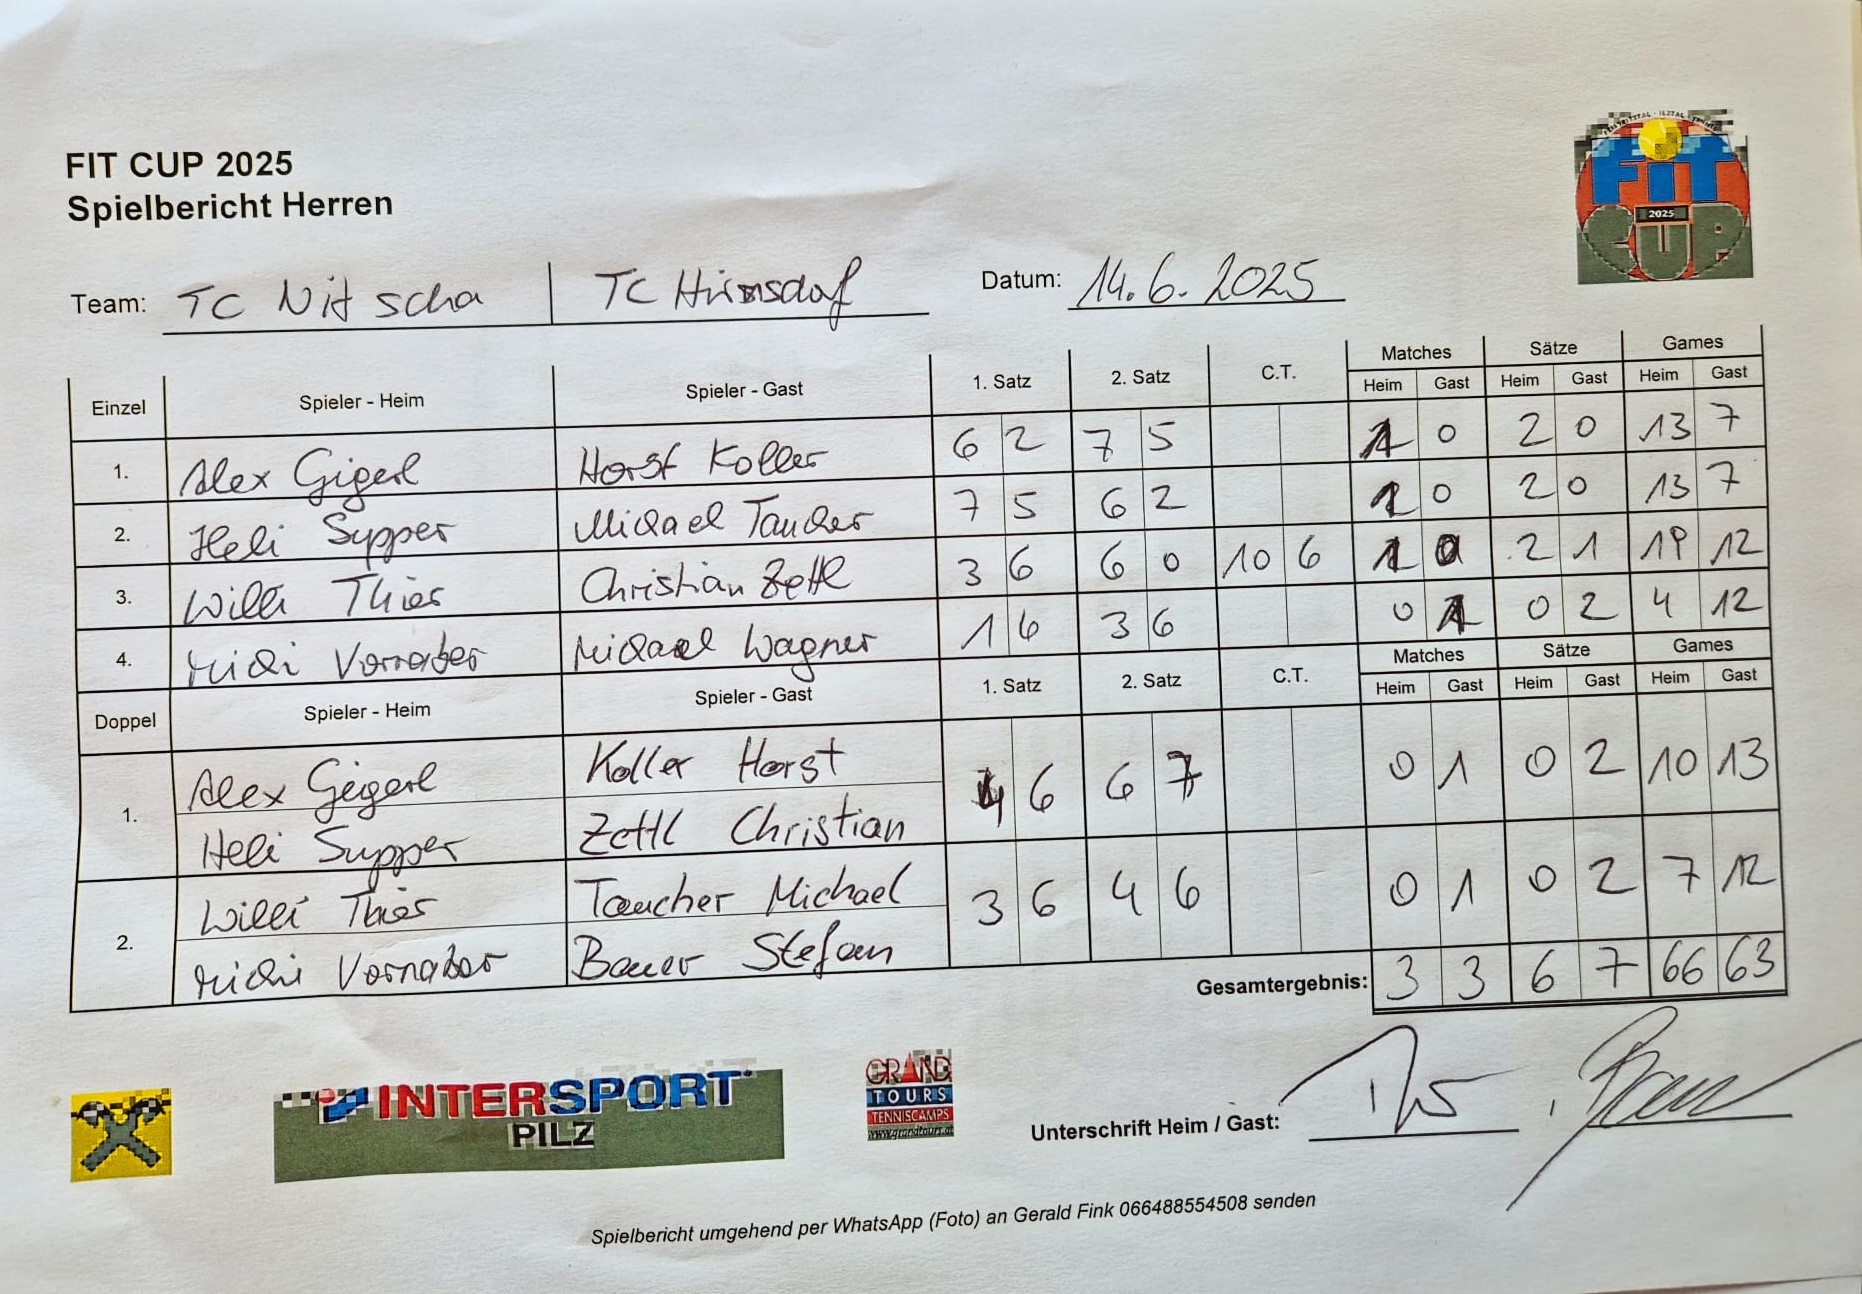 FIT CUP 2025
Spielbericht Herren
FIT
2025
CUP
Team: TC Nitscha | TC Hirnsdorf Datum: 14.6.2025
Einzel Spieler - Heim Spieler - Gast 1. Satz 2. Satz C.T. Matches Sätze Games
Heim Gast Heim Gast Heim Gast
1. Alex Gigerl Horst Koller 6 2 7 5 1 0 2 0 13 7
2. Heli Supper Michael Taucher 7 5 6 2 1 0 2 0 13 7
3. Willi Thier Christian Zettl 3 6 6 0 10 6 1 0 2 1 19 12
4. Michi Vornaber Michael Wagner 1 6 3 6 0 1 0 2 4 12
Doppel Spieler - Heim Spieler - Gast 1. Satz 2. Satz C.T. Matches Sätze Games
Heim Gast Heim Gast Heim Gast
1. Alex Geigerl Koller Horst 4 6 6 7 0 1 0 2 10 13
Heli Supper Zettl Christian
2. Willi Thier Taucher Michael 3 6 4 6 0 1 0 2 7 12
Michi Vornaber Bauer Stefan
Gesamtergebnis: 3 3 6 7 66 63
INTERSPORT
PILZ
GRAND
TOURS
TENNISCAMPS
www.grandtours.at
Unterschrift Heim / Gast:
Spielbericht umgehend per WhatsApp (Foto) an Gerald Fink 066488554508 senden